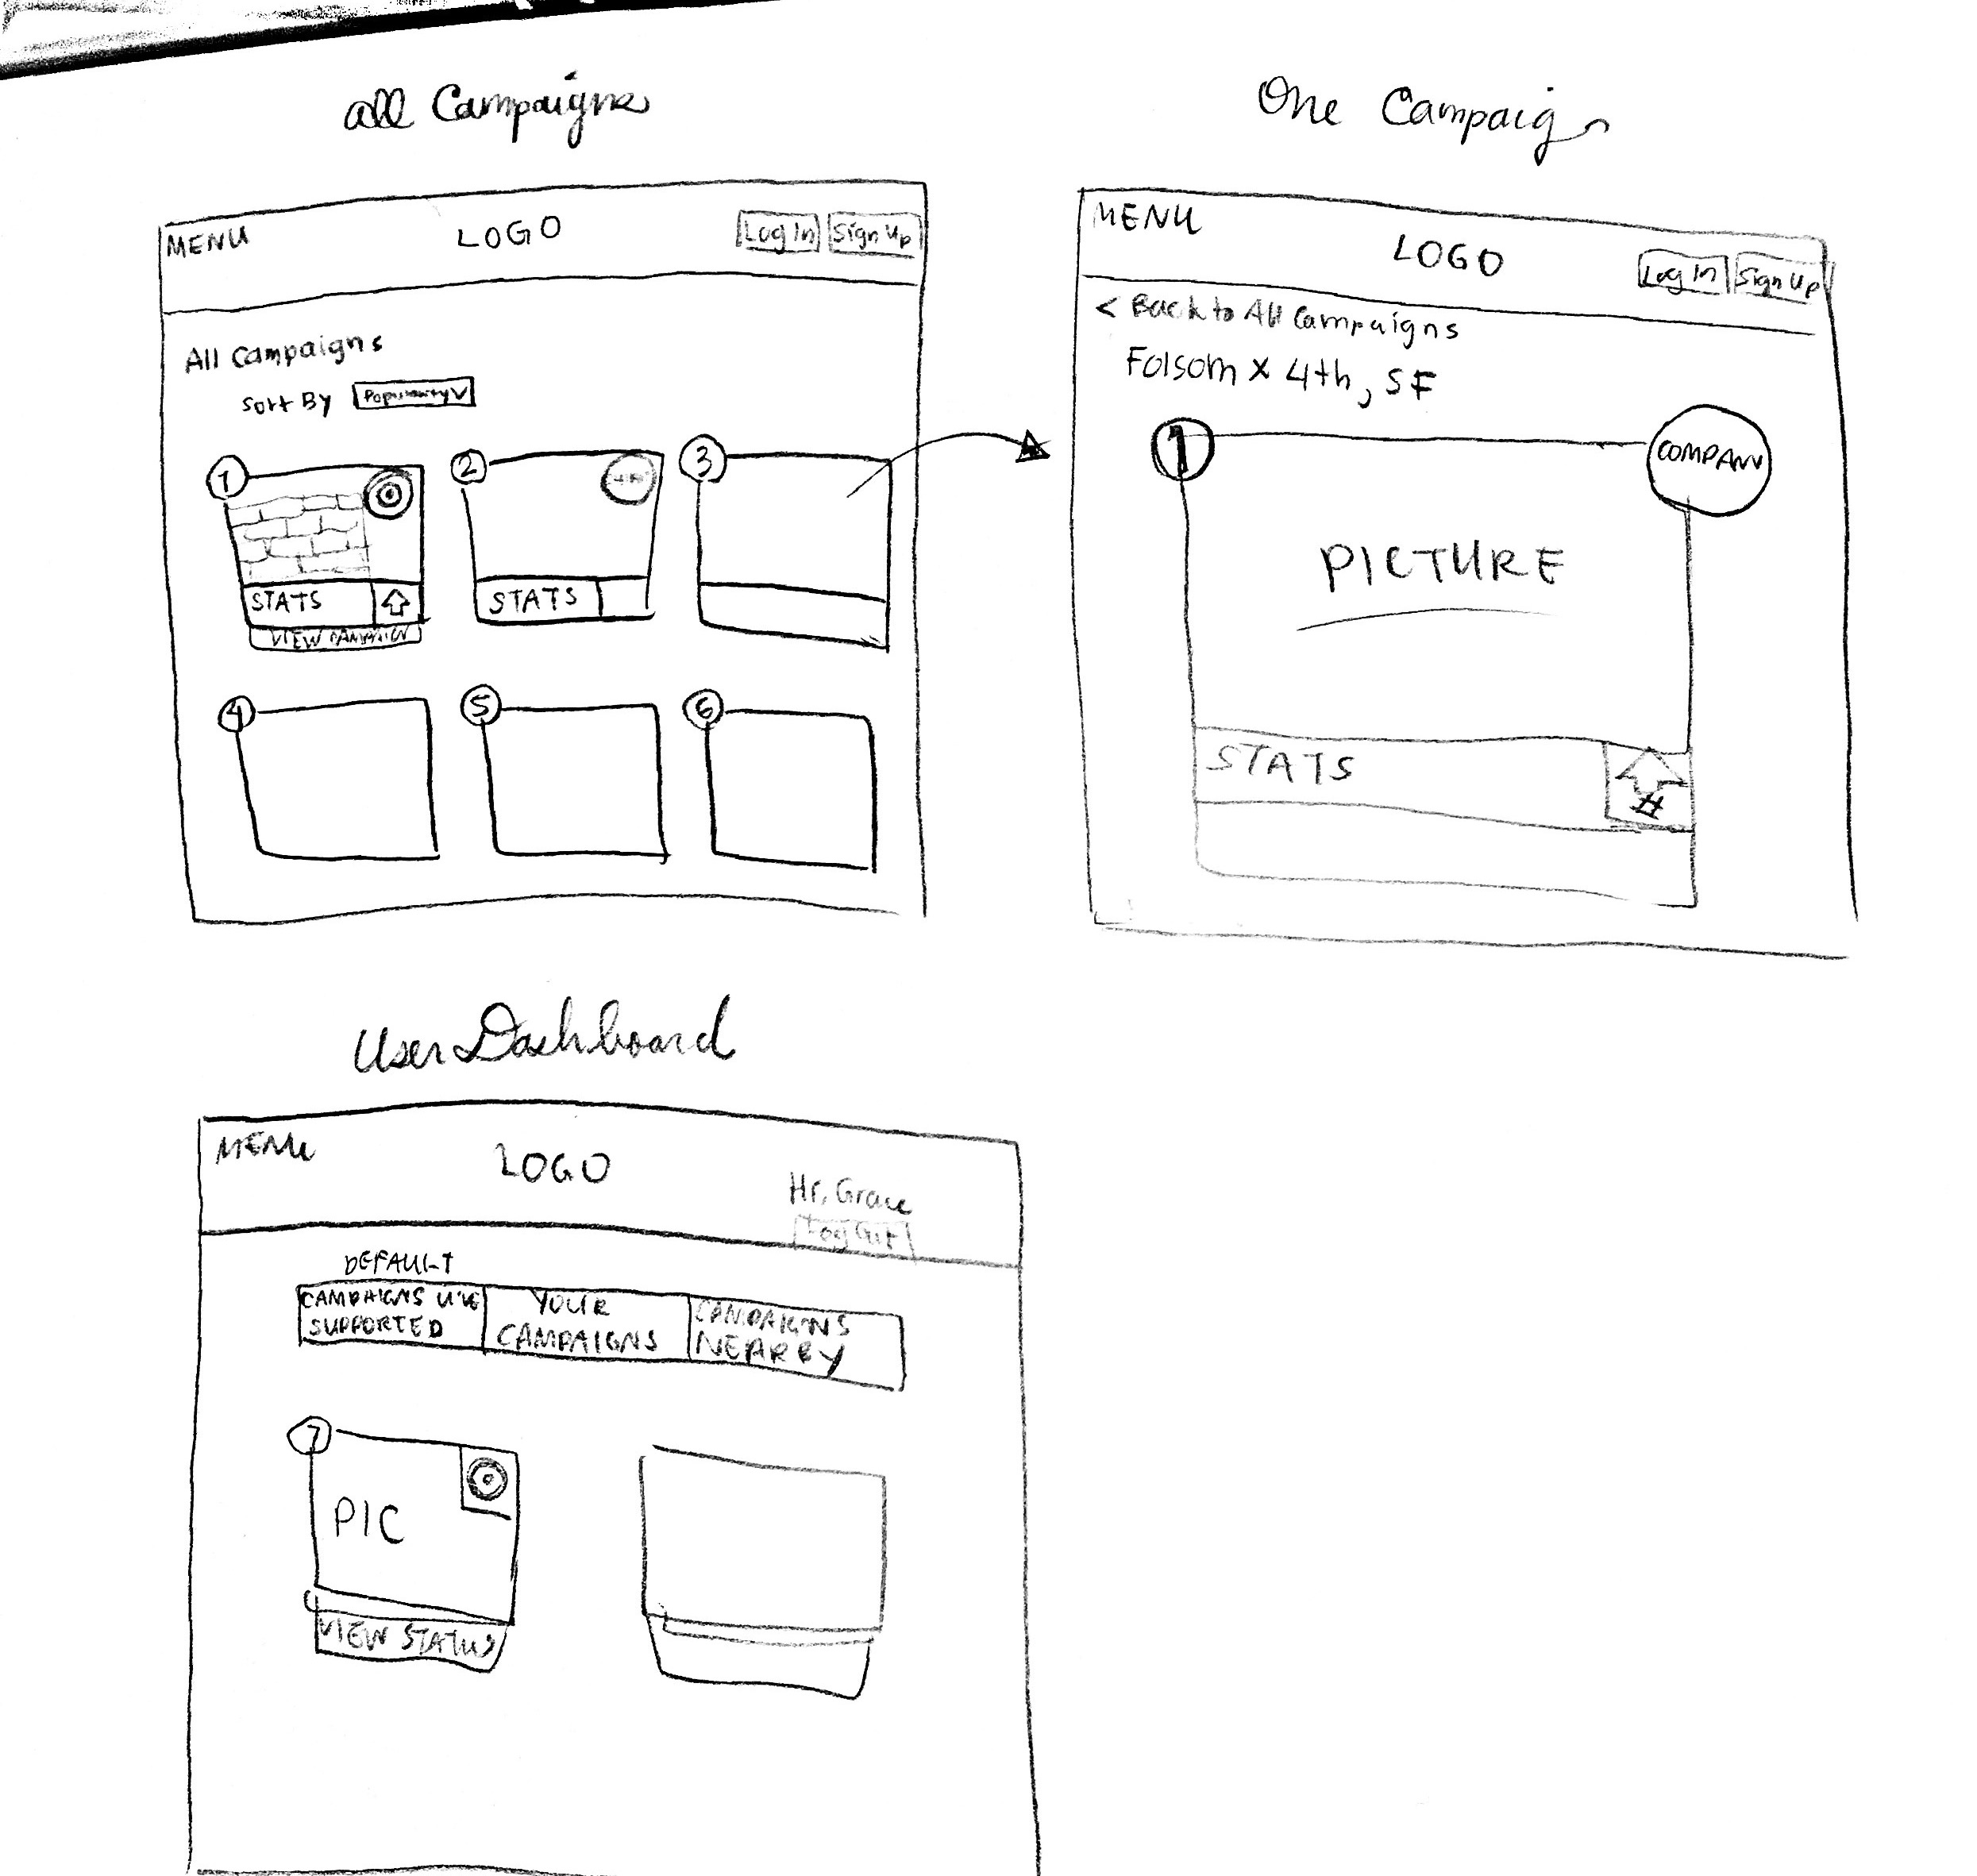 All Campaigns
MENU
LOGO
Log In
Sign Up
All Campaigns
Sort By
Popularity V
1
2
3
STATS
STATS
VIEW CAMPAIGN
4
5
6
One Campaign
MENU
LOGO
Log In
Sign Up
< Back to All Campaigns
Folsom x 4th, SF
1
COMPANY
PICTURE
STATS
#
User Dashboard
MENU
LOGO
Hi, Grace
Log Out
DEFAULT
CAMPAIGNS U'VE
SUPPORTED
YOUR
CAMPAIGNS
CAMPAIGNS
NEARBY
7
PIC
VIEW STATUS